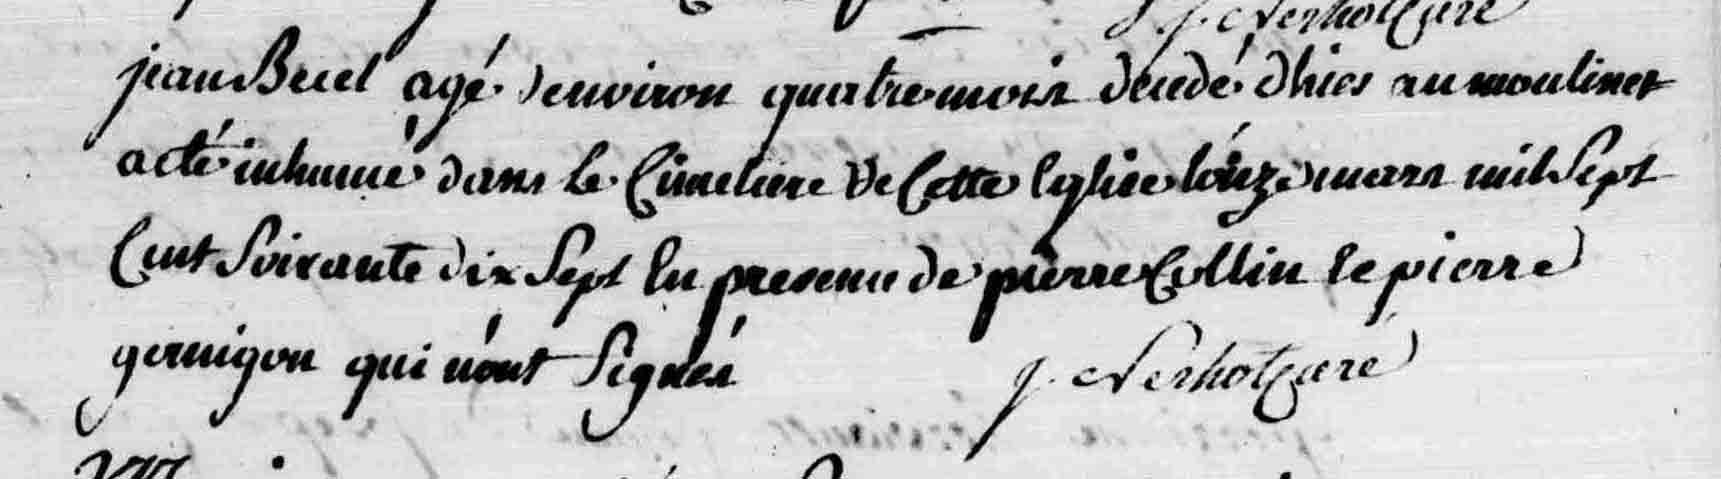 jean Becel agé denviron quatre mois decedé dhier au moulinet
a eté inhumé dans le Cimetiere de Cette Eglise l'onze mars mil Sept
Cent Soixante dix Sept En presence de pierre Collin & pierre
gernigon qui n'ont Signés